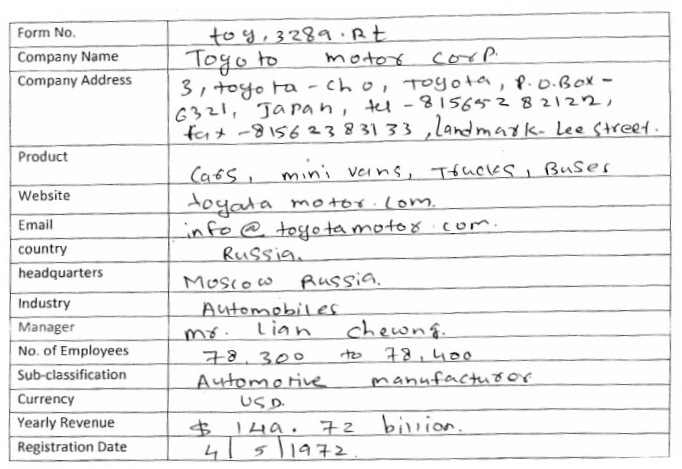 Form No. toy,3289.Rt
Company Name Toyoto motor corp.
Company Address 3, toyota-cho, Toyota, P.O.Box-
6321, Japan, tel -815652 82122,
fax -8156 2383133, landmark- Lee Street.
Product Cars, mini vans, Trucks, Buses
Website toyata motor.com.
Email info@toyotamotor.com.
country Russia.
headquarters Moscow Russia.
Industry Automobiles
Manager mr. Lian chewong.
No. of Employees 78,300 to 78,400
Sub-classification Automotive manufacturer
Currency USD.
Yearly Revenue $ 149.72 billion.
Registration Date 4/5/1972.